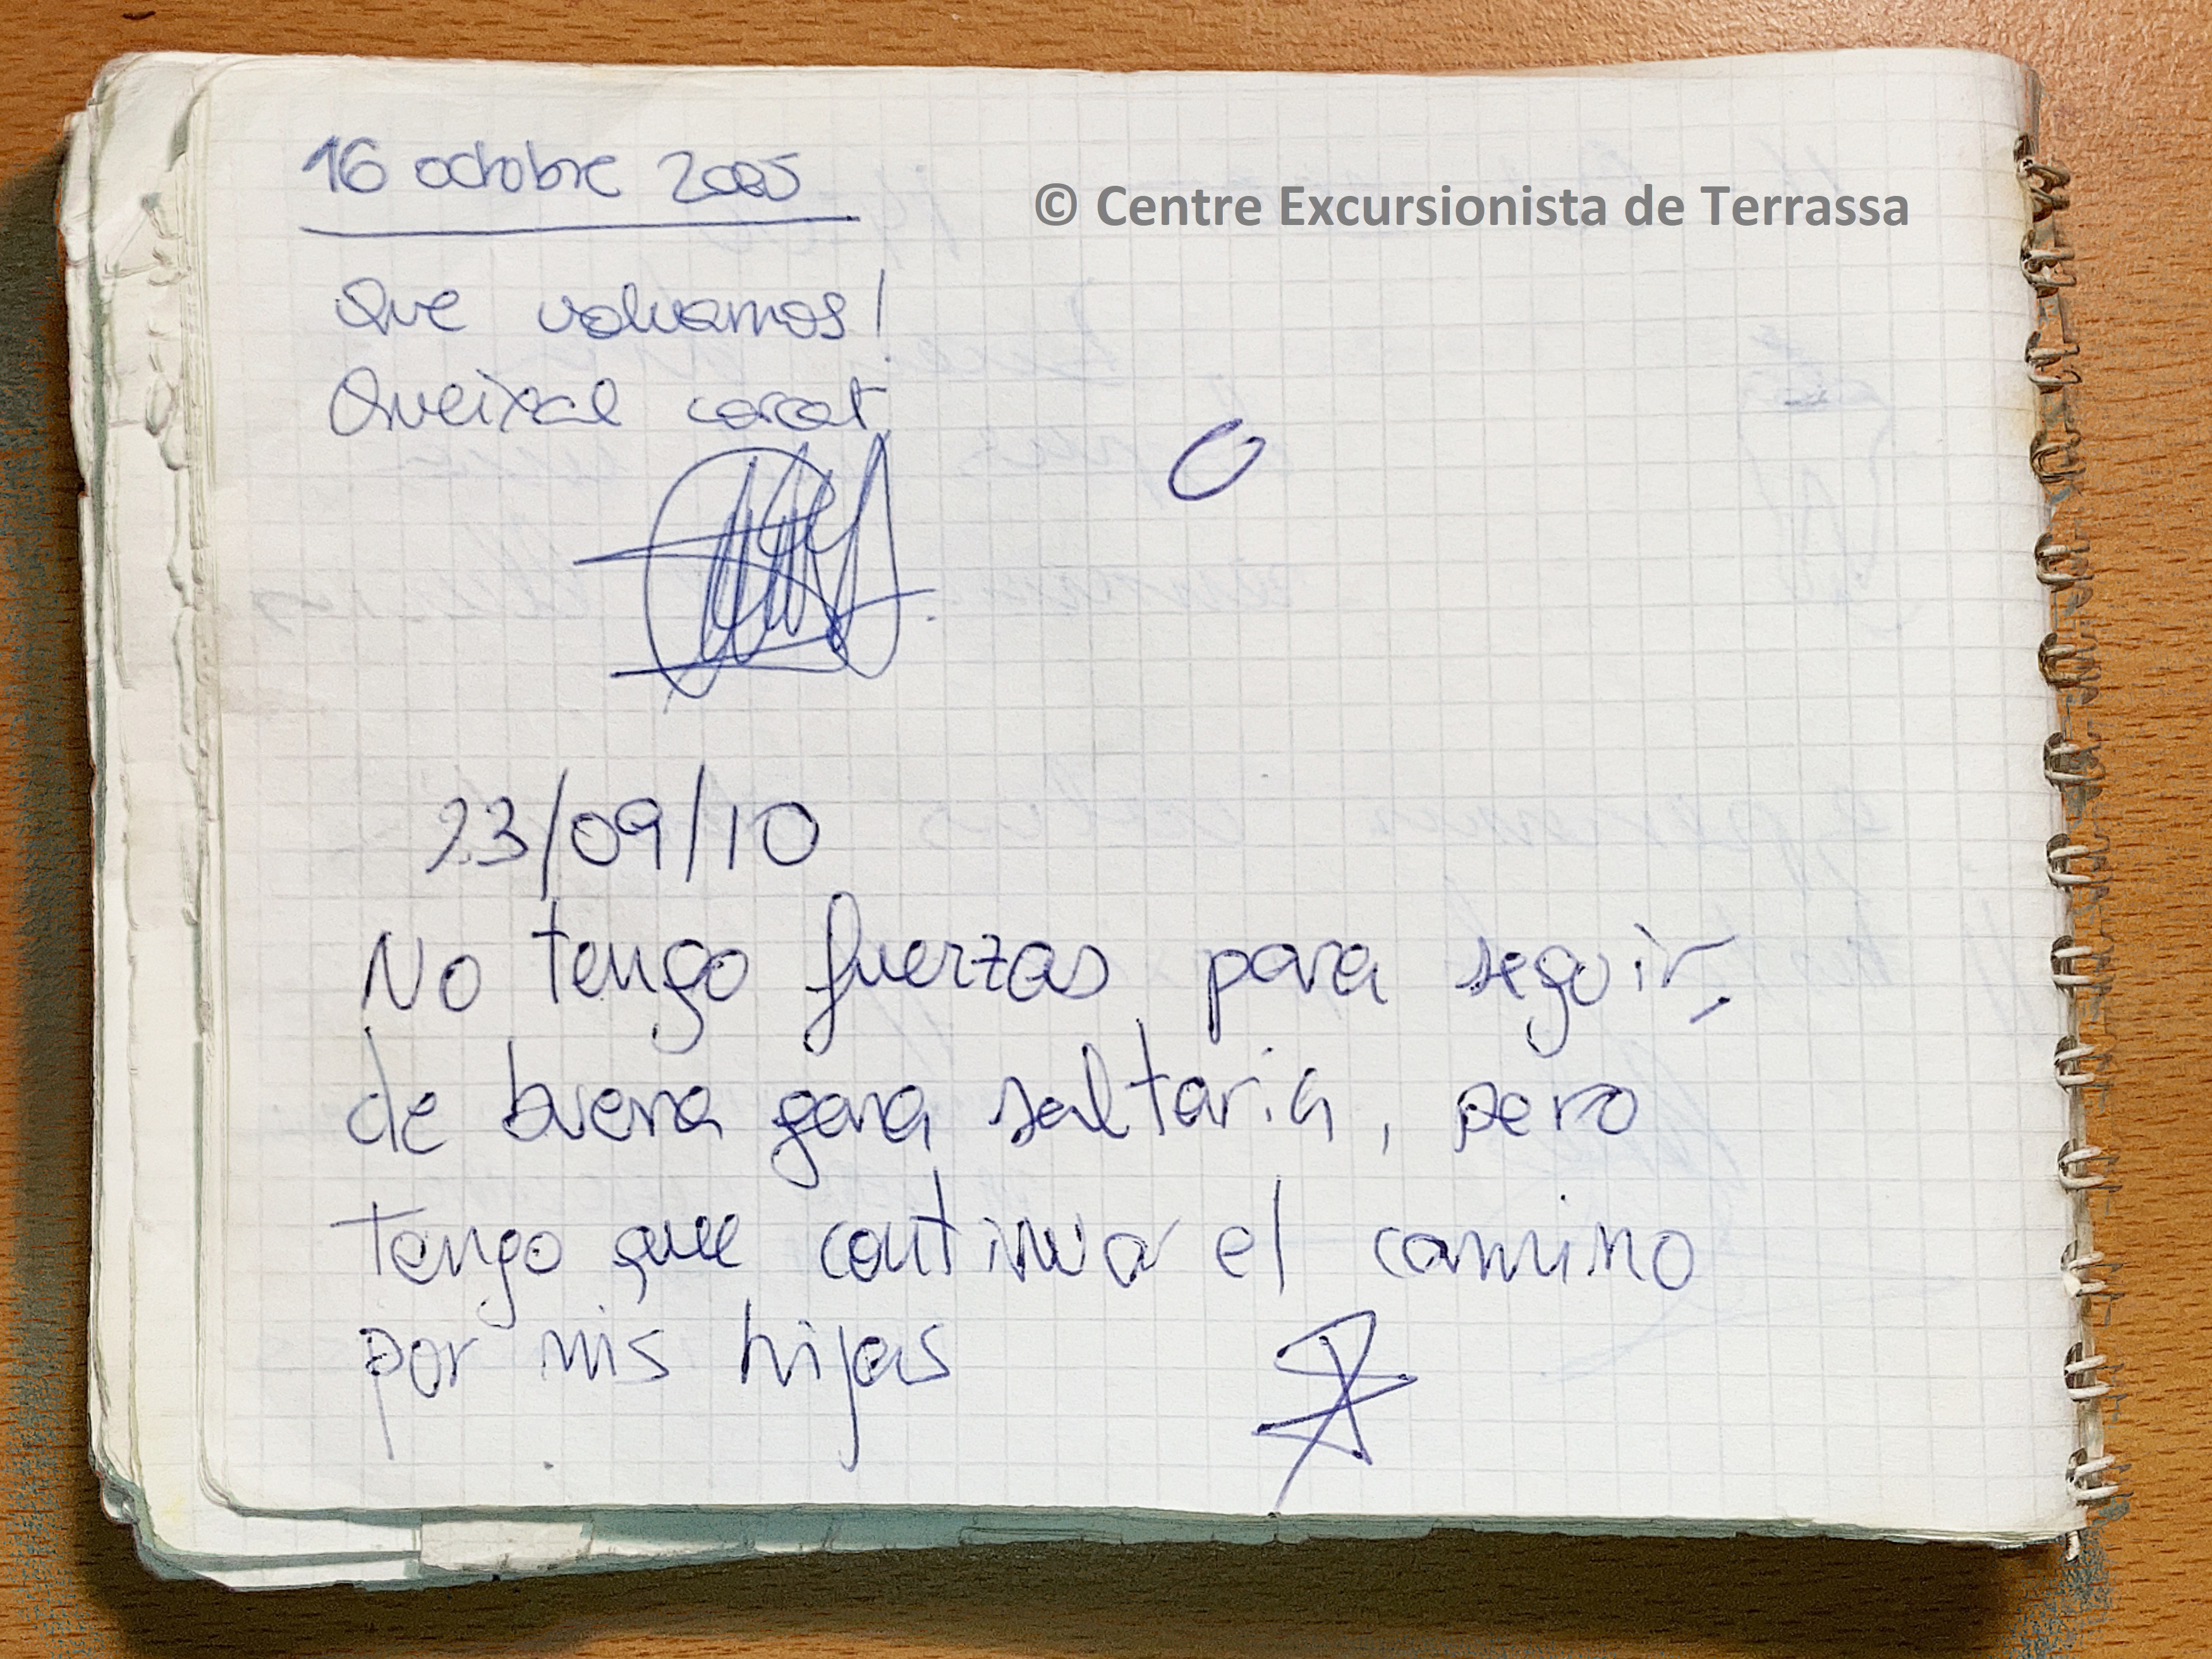 16 octobre 2005
© Centre Excursionista de Terrassa
Que volvamos!
Queixal corcat
23/09/10
No tengo fuerzas para seguir,
de buena gana saltaria, pero
tengo que continuar el camino
por mis hijas